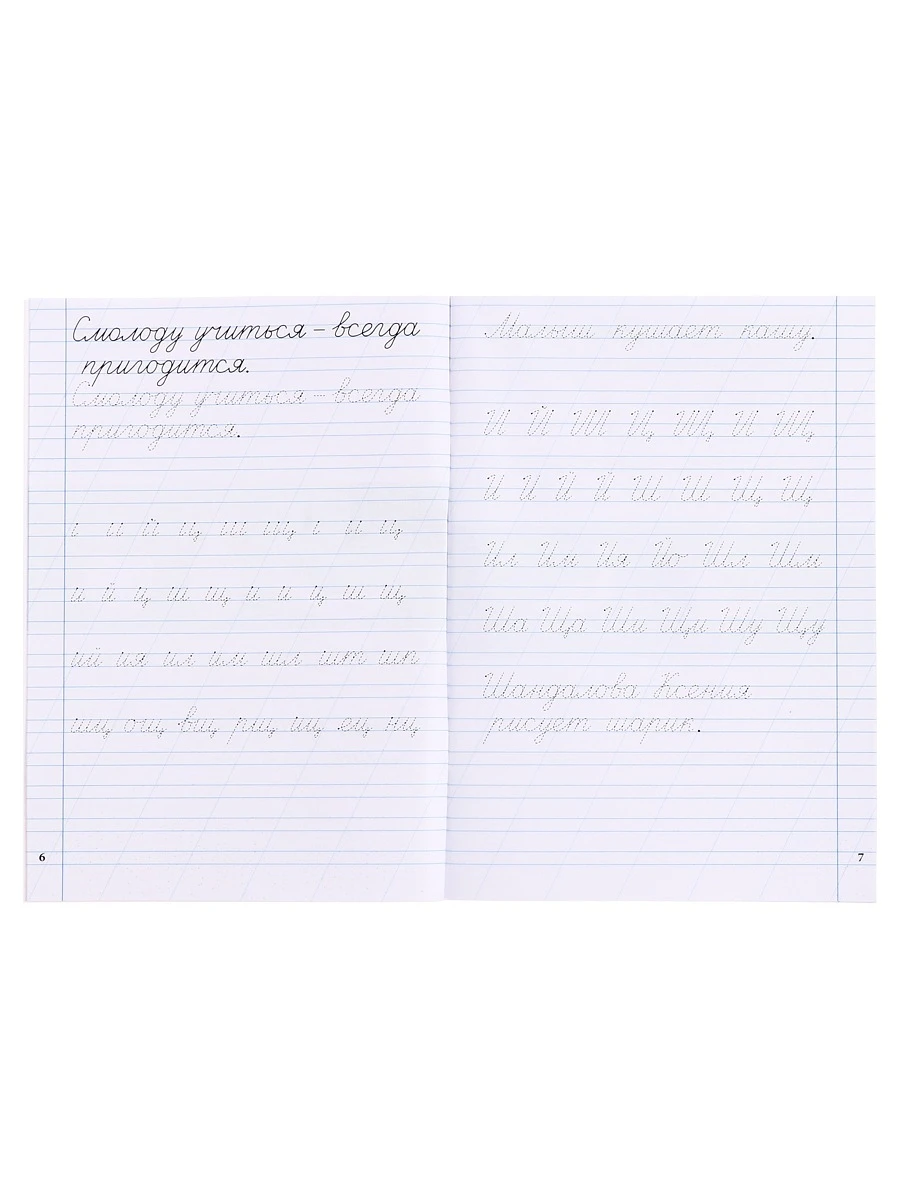 Смолоду учиться – всегда
пригодится.
Смолоду учиться – всегда
пригодится.
і и й ц ш щ і и ц
и й ц ш щ и и ц ш щ
ий ия ил им шл шт шп
щ ощ вщ рщ щ ец нц
6
Малыш кушает кашу.
И Й Ш Ц Щ И Щ
И И Й Й Ш Ш Щ Щ
Ил Им Ия Йо Шл Шм
Ша Ща Ши Щи Шу Щу
Шандалова Ксения
рисует шарик.
7